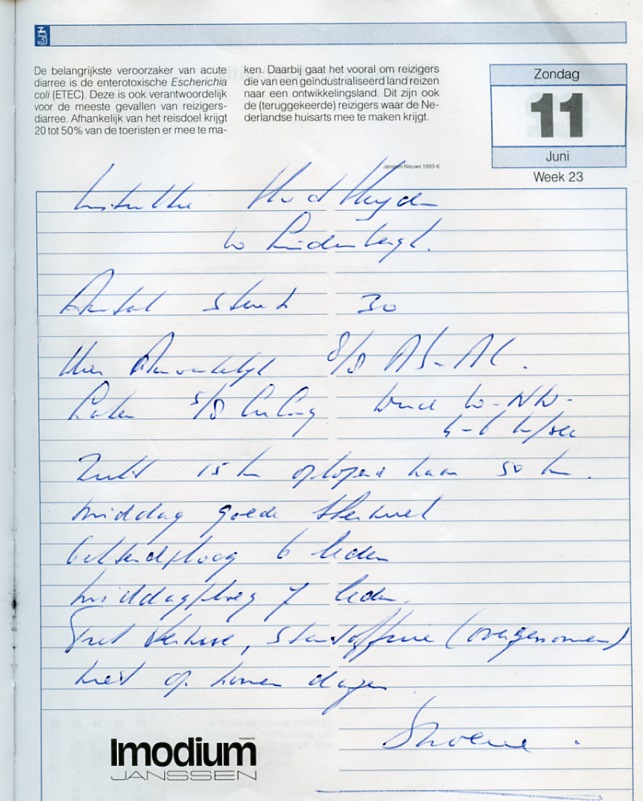 De belangrijkste veroorzaker van acute
diarree is de enterotoxische Escherichia
coli (ETEC). Deze is ook verantwoordelijk
voor de meeste gevallen van reizigers-
diarree. Afhankelijk van het reisdoel krijgt
20 tot 50% van de toeristen er mee te ma-
ken. Daarbij gaat het vooral om reizigers
die van een geïndustrialiseerd land reizen
naar een ontwikkelingsland. Dit zijn ook
de (teruggekeerde) reizigers waar de Ne-
derlandse huisarts mee te maken krijgt.
Janssen Nieuws 1993-6
Zondag
11
Juni
Week 23
Aantal 30
8/8 AS-AC.
Later 5/8 wind W-NW-
4-6 m/sec
Zicht 15 km oplopend naar 30 km.
middag goede thermiek
ochtendploeg 6 leden
middagploeg 7 leden.
startofficier (overgenomen)
niet op komen dagen
Imodium
JANSSEN